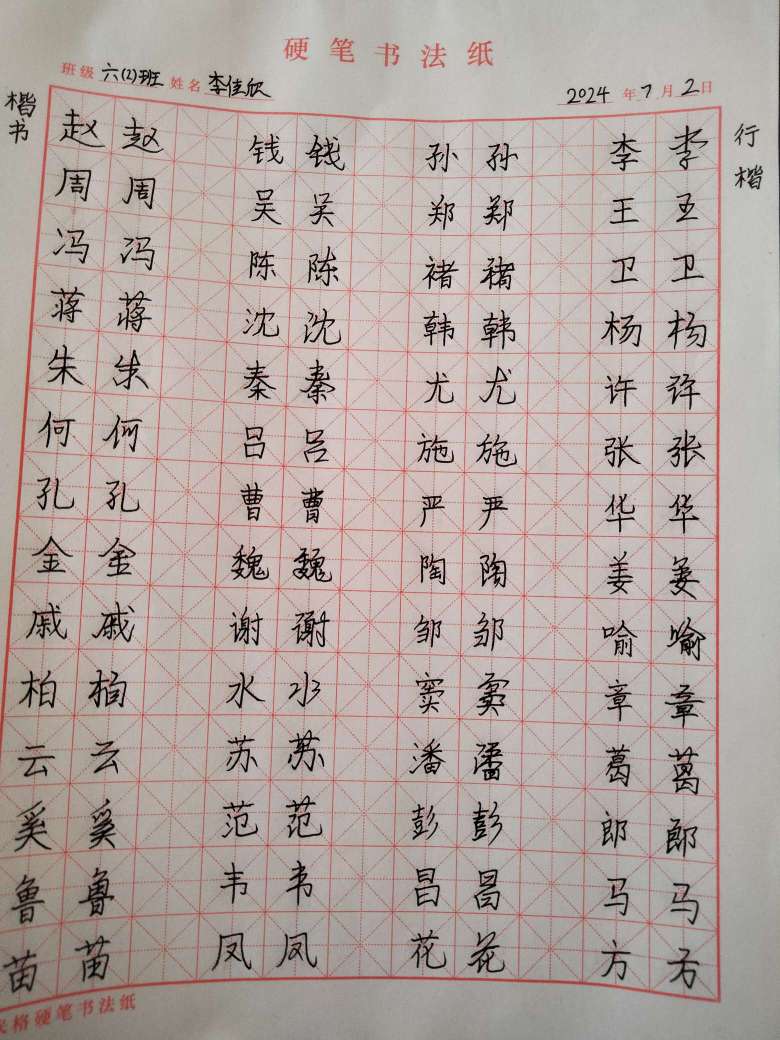 硬笔书法纸
班级 六(2)班 姓名 李佳欣 2024 年 7 月 2 日
楷书
行楷
赵 赵 钱 钱 孙 孙 李 李
周 周 吴 吴 郑 郑 王 王
冯 冯 陈 陈 褚 褚 卫 卫
蒋 蒋 沈 沈 韩 韩 杨 杨
朱 朱 秦 秦 尤 尤 许 许
何 何 吕 吕 施 施 张 张
孔 孔 曹 曹 严 严 华 华
金 金 魏 魏 陶 陶 姜 姜
戚 戚 谢 谢 邹 邹 喻 喻
柏 柏 水 水 窦 窦 章 章
云 云 苏 苏 潘 潘 葛 葛
奚 奚 范 范 彭 彭 郎 郎
鲁 鲁 韦 韦 昌 昌 马 马
苗 苗 凤 凤 花 花 方 方
米格硬笔书法纸